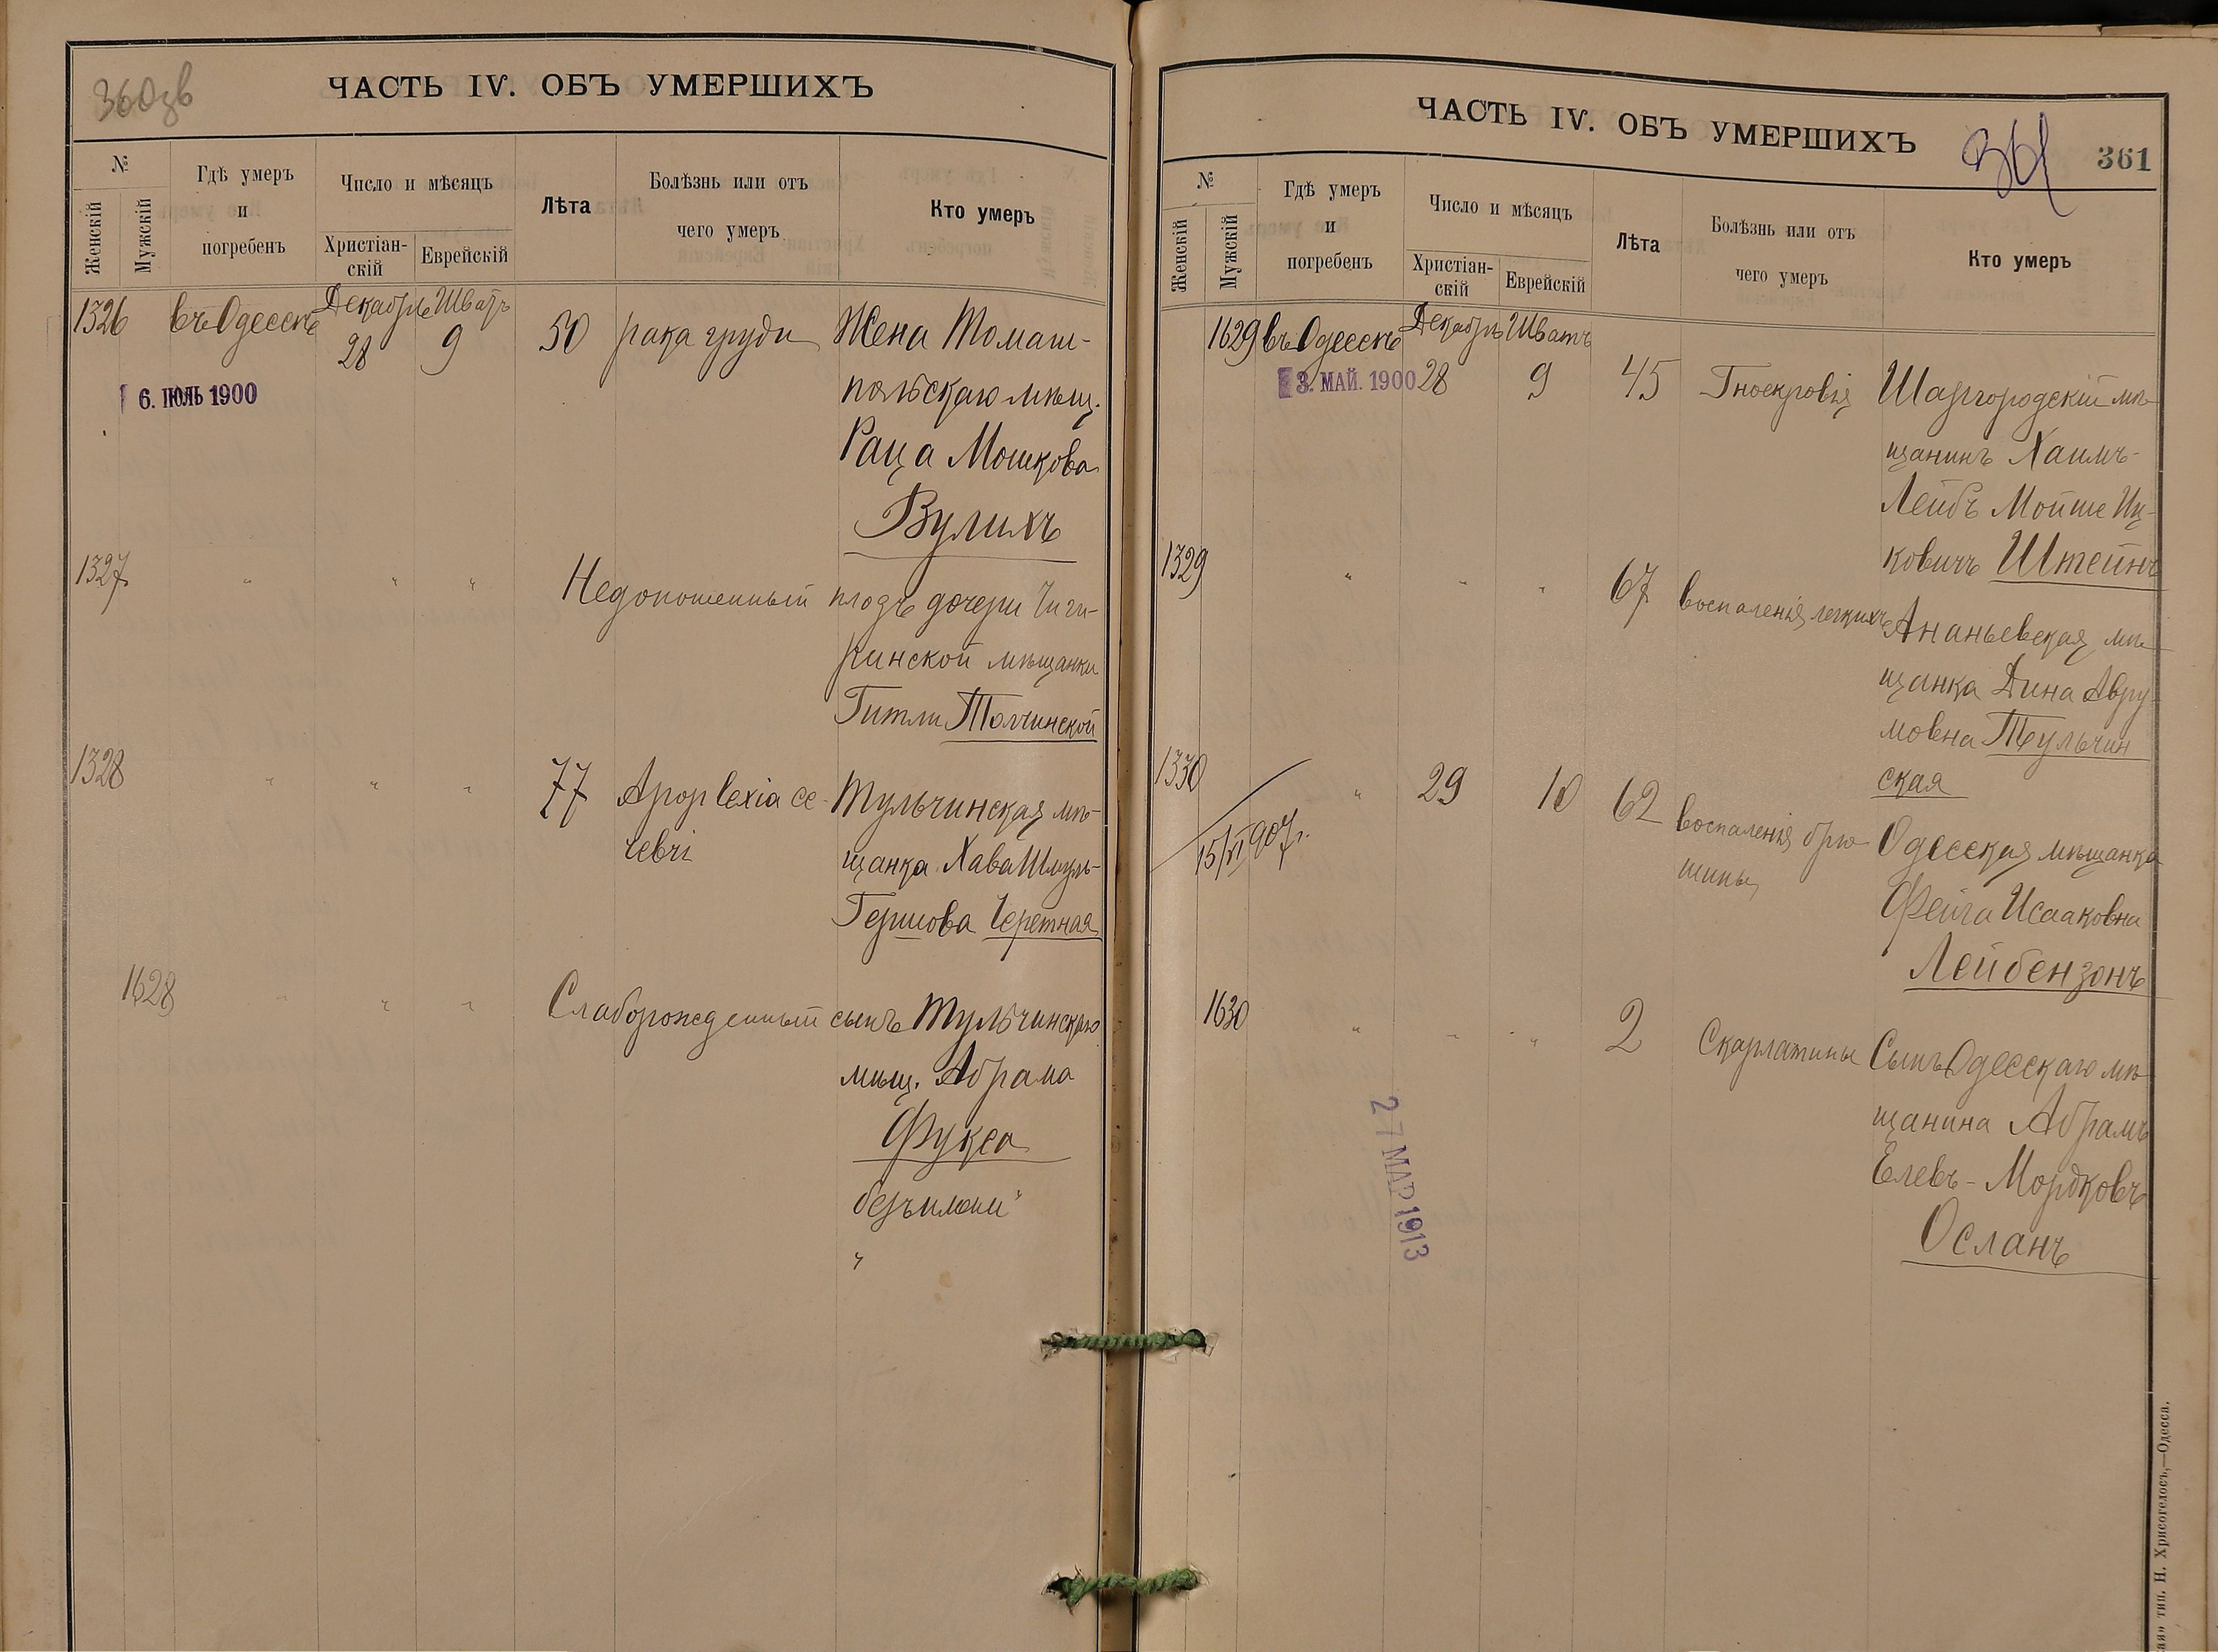 360зв
ЧАСТЬ IV. ОБЪ УМЕРШИХЪ
№
Женскій
Мужскій
Гдѣ умеръ
и
погребенъ
Число и мѣсяцъ
Христіан-
скій
Еврейскій
Лѣта
Болѣзнь или отъ
чего умеръ
Кто умеръ
1326 въ Одессѣ Декабрь 28 Шватъ 9 50 рака груди Жена Томаш-
польскаго мѣщ.
6. ІЮЛЬ 1900
Раца Мошкова
Вулихъ
1327 " " " Недоношенный плодъ дочери Чиги-
ринской мѣщанки
Гитли Толчинской
1328 " " " 77 Apoplexia ce- Тульчинская мѣ-
rebri щанка Хава Шмуль-
Гершова Черетная
1628 " " " Слаборожденный сынъ Тульчинскаго
мѣщ. Абрама
Фукса
безъимени
"
ЧАСТЬ IV. ОБЪ УМЕРШИХЪ
361
361
№
Женскій
Мужскій
Гдѣ умеръ
и
погребенъ
Число и мѣсяцъ
Христіан-
скій
Еврейскій
Лѣта
Болѣзнь или отъ
чего умеръ
Кто умеръ
1629 въ Одессѣ Декабрь 28 Шватъ 9 45 Гноекровія Шаргородскій мѣ-
3. МАЙ. 1900
щанинъ Хаимъ-
Лейбъ Мойше Иц-
ковичъ Штейнъ
1329 " " " 67 воспаленія легкихъ Ананьевская мѣ-
щанка Дина Авру-
мовна Тульчин
ская
1330 " 29 10 62 воспаленія брю- Одесская мѣщанка
15/VI 907г.
шины Фейга Исааковна
Лейбензонъ
1630 " " " 2 Скарлатины Сынъ Одесскаго мѣ-
щанина Абрамъ
Елевъ-Мордковъ
Осланъ
27 МАР 1913
тип. Н. Хрисогелосъ,—Одесса.